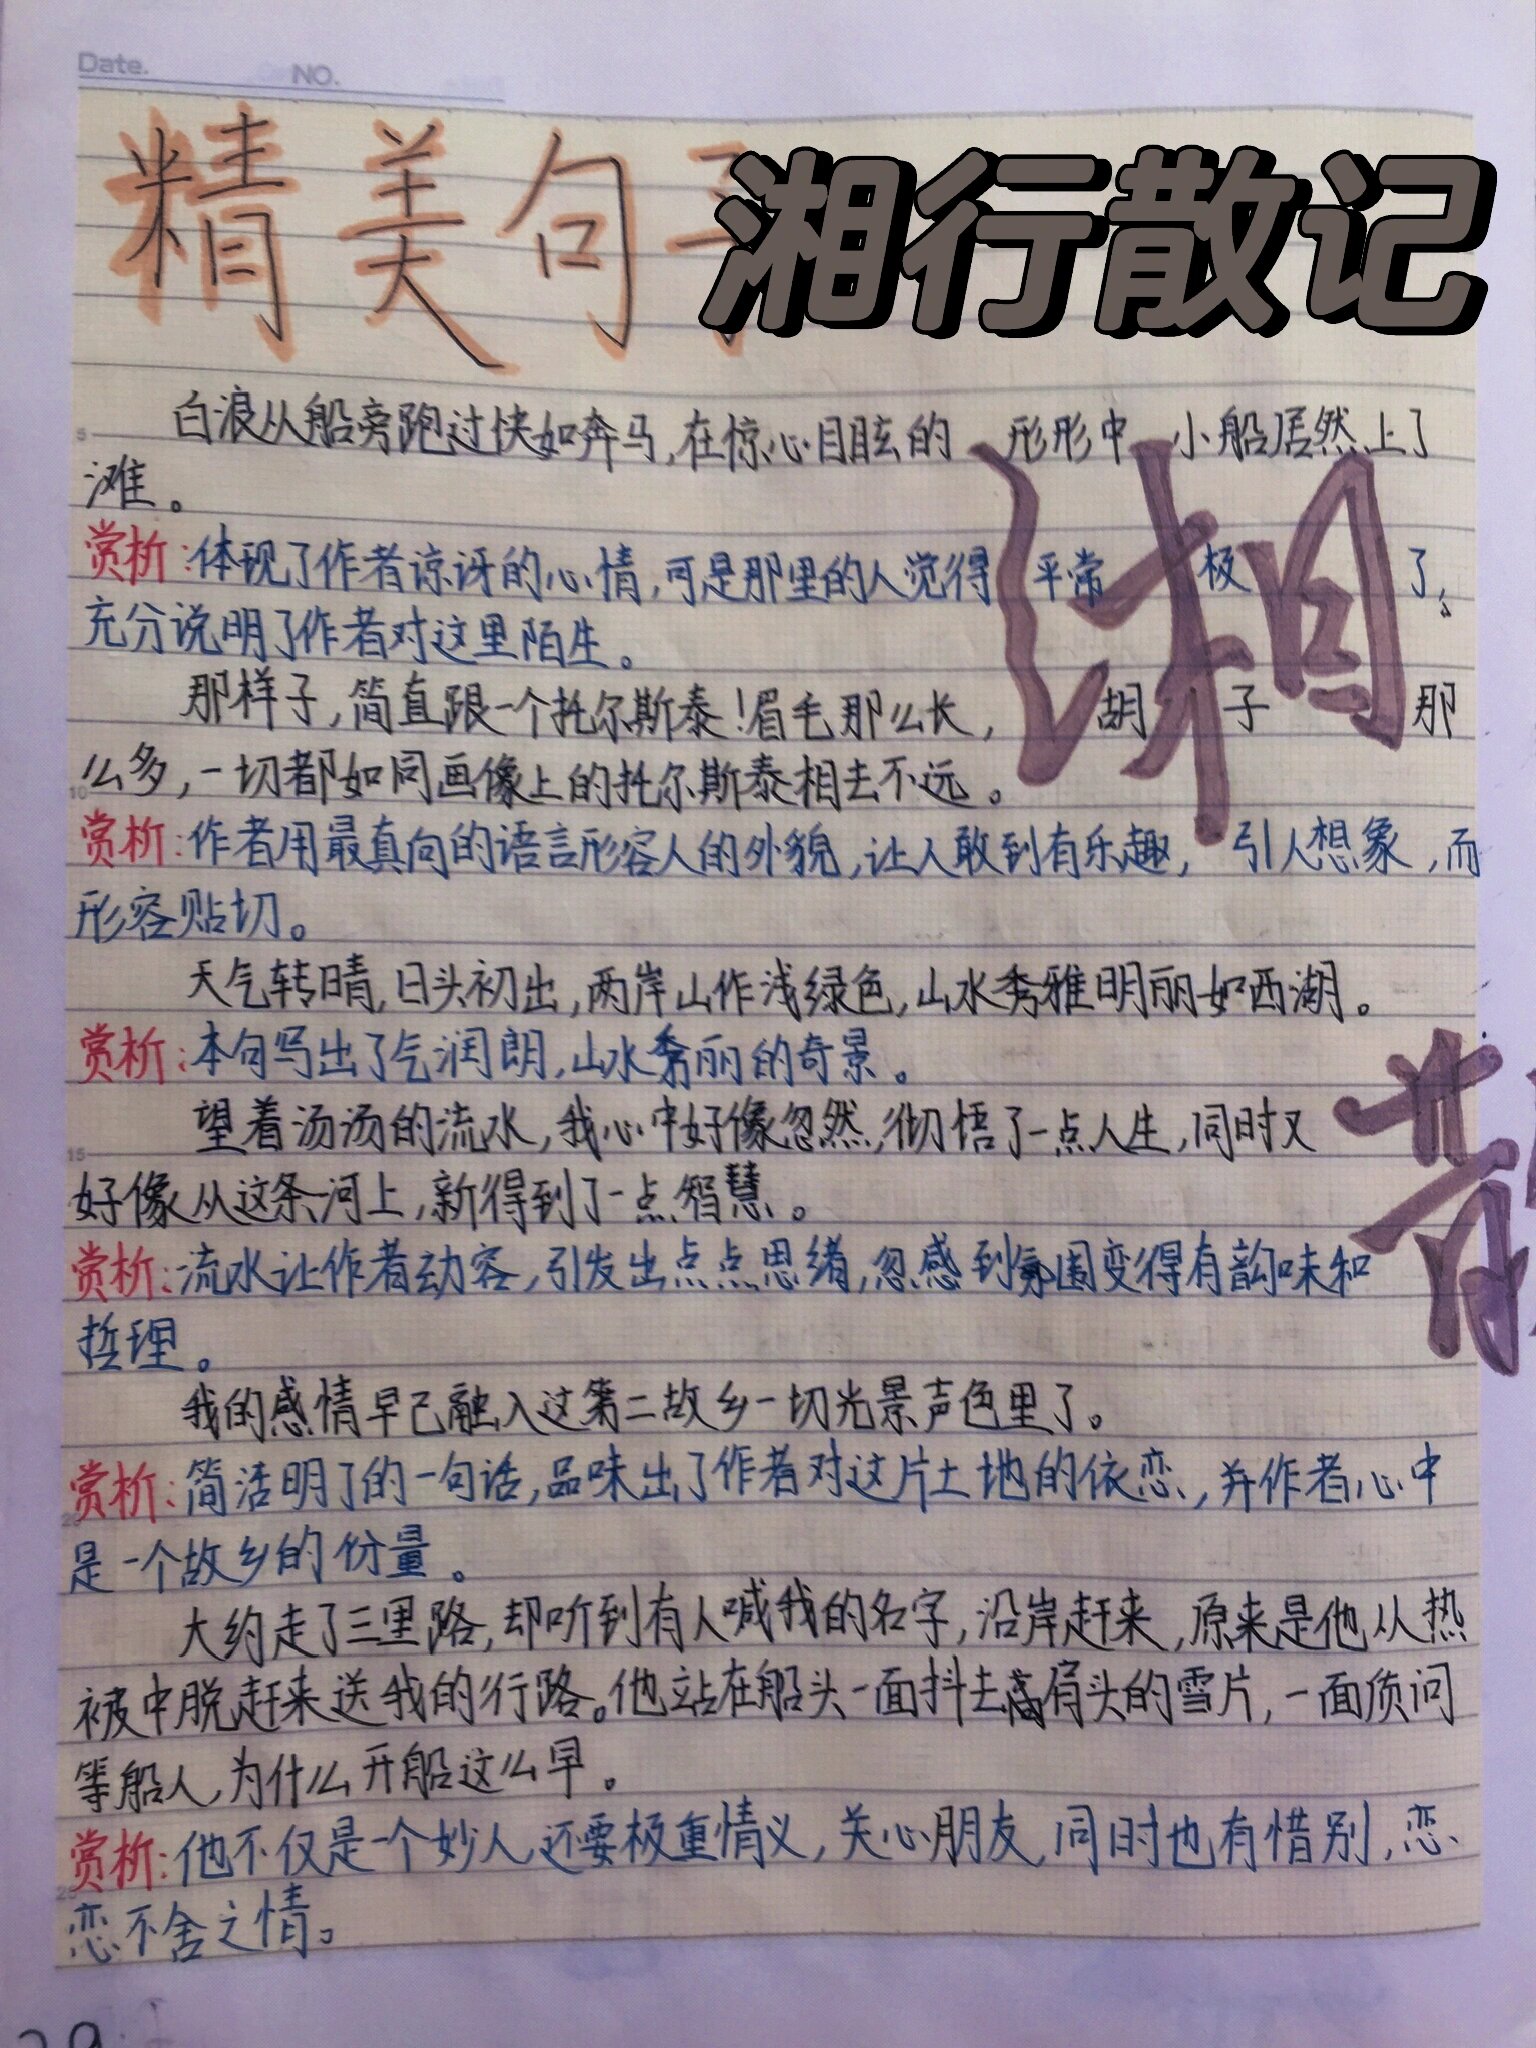 Date.
NO.
精美句子
湘行散记
白浪从船旁跑过快如奔马,在惊心目眩的 形形中 小船居然上了
滩。
赏析:体现了作者谅讶的心情,可是那里的人觉得 平常 极 了,
充分说明了作者对这里陌生。
那样子,简直跟一个托尔斯泰!眉毛那么长, 胡子 那
么多,一切都如同画像上的托尔斯泰相去不远。
赏析:作者用最真向的语言形容人的外貌,让人敢到有乐趣, 引人想象,而
形容贴切。
天气转晴,日头初出,两岸山作浅绿色,山水秀雅明丽如西湖。
赏析:本句写出了气润朗,山水秀丽的奇景。
望着汤汤的流水,我心中好像忽然,彻悟了一点人生,同时又
好像从这条河上,新得到了一点智慧。
赏析:流水让作者动容,引发出点点思绪,忽感到氛围变得有韵味和
哲理。
我的感情早已融入这第二故乡一切光景声色里了。
赏析:简洁明了的一句话,品味出了作者对这片土地的依恋,并作者心中
是一个故乡的份量。
大约走了三里路,却听到有人喊我的名字,沿岸赶来,原来是他从热
被中脱赶来送我的行路。他站在船头一面抖去肩头的雪片,一面质问
等船人,为什么开船这么早。
赏析:他不仅是一个妙人,还要极重情义,关心朋友,同时也有惜别,恋
恋不舍之情。
湘
散
29